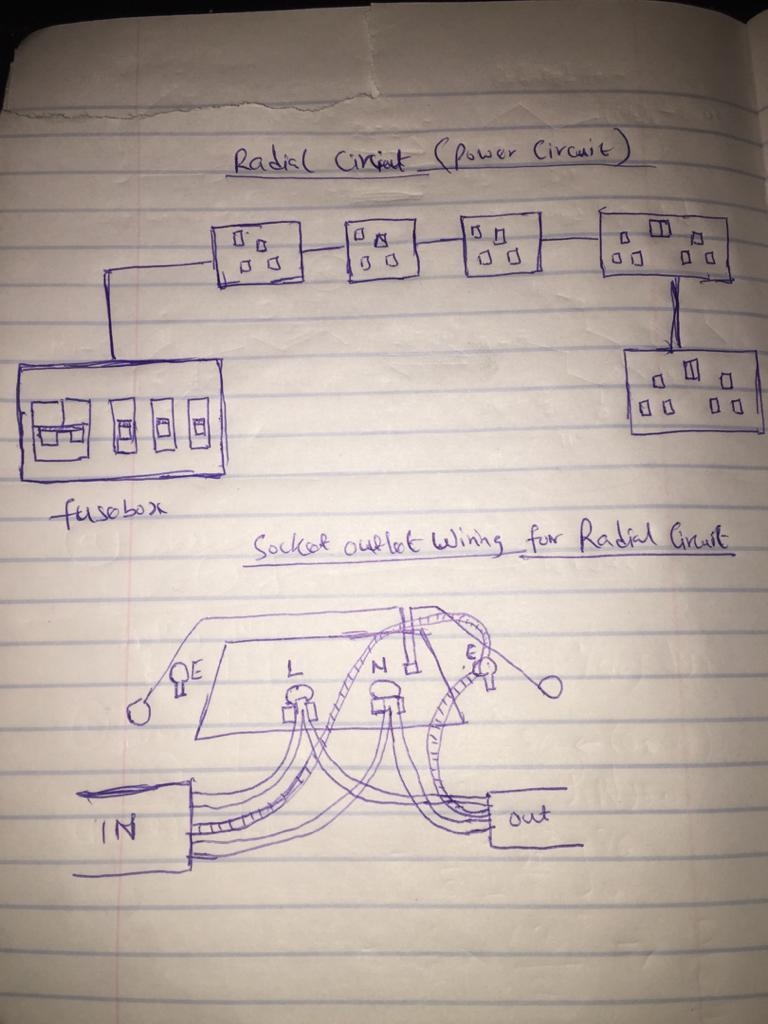 Radial Circuit (Power Circuit)
fusebox
Socket outlet Wiring for Radial Circuit
E L N E
IN out